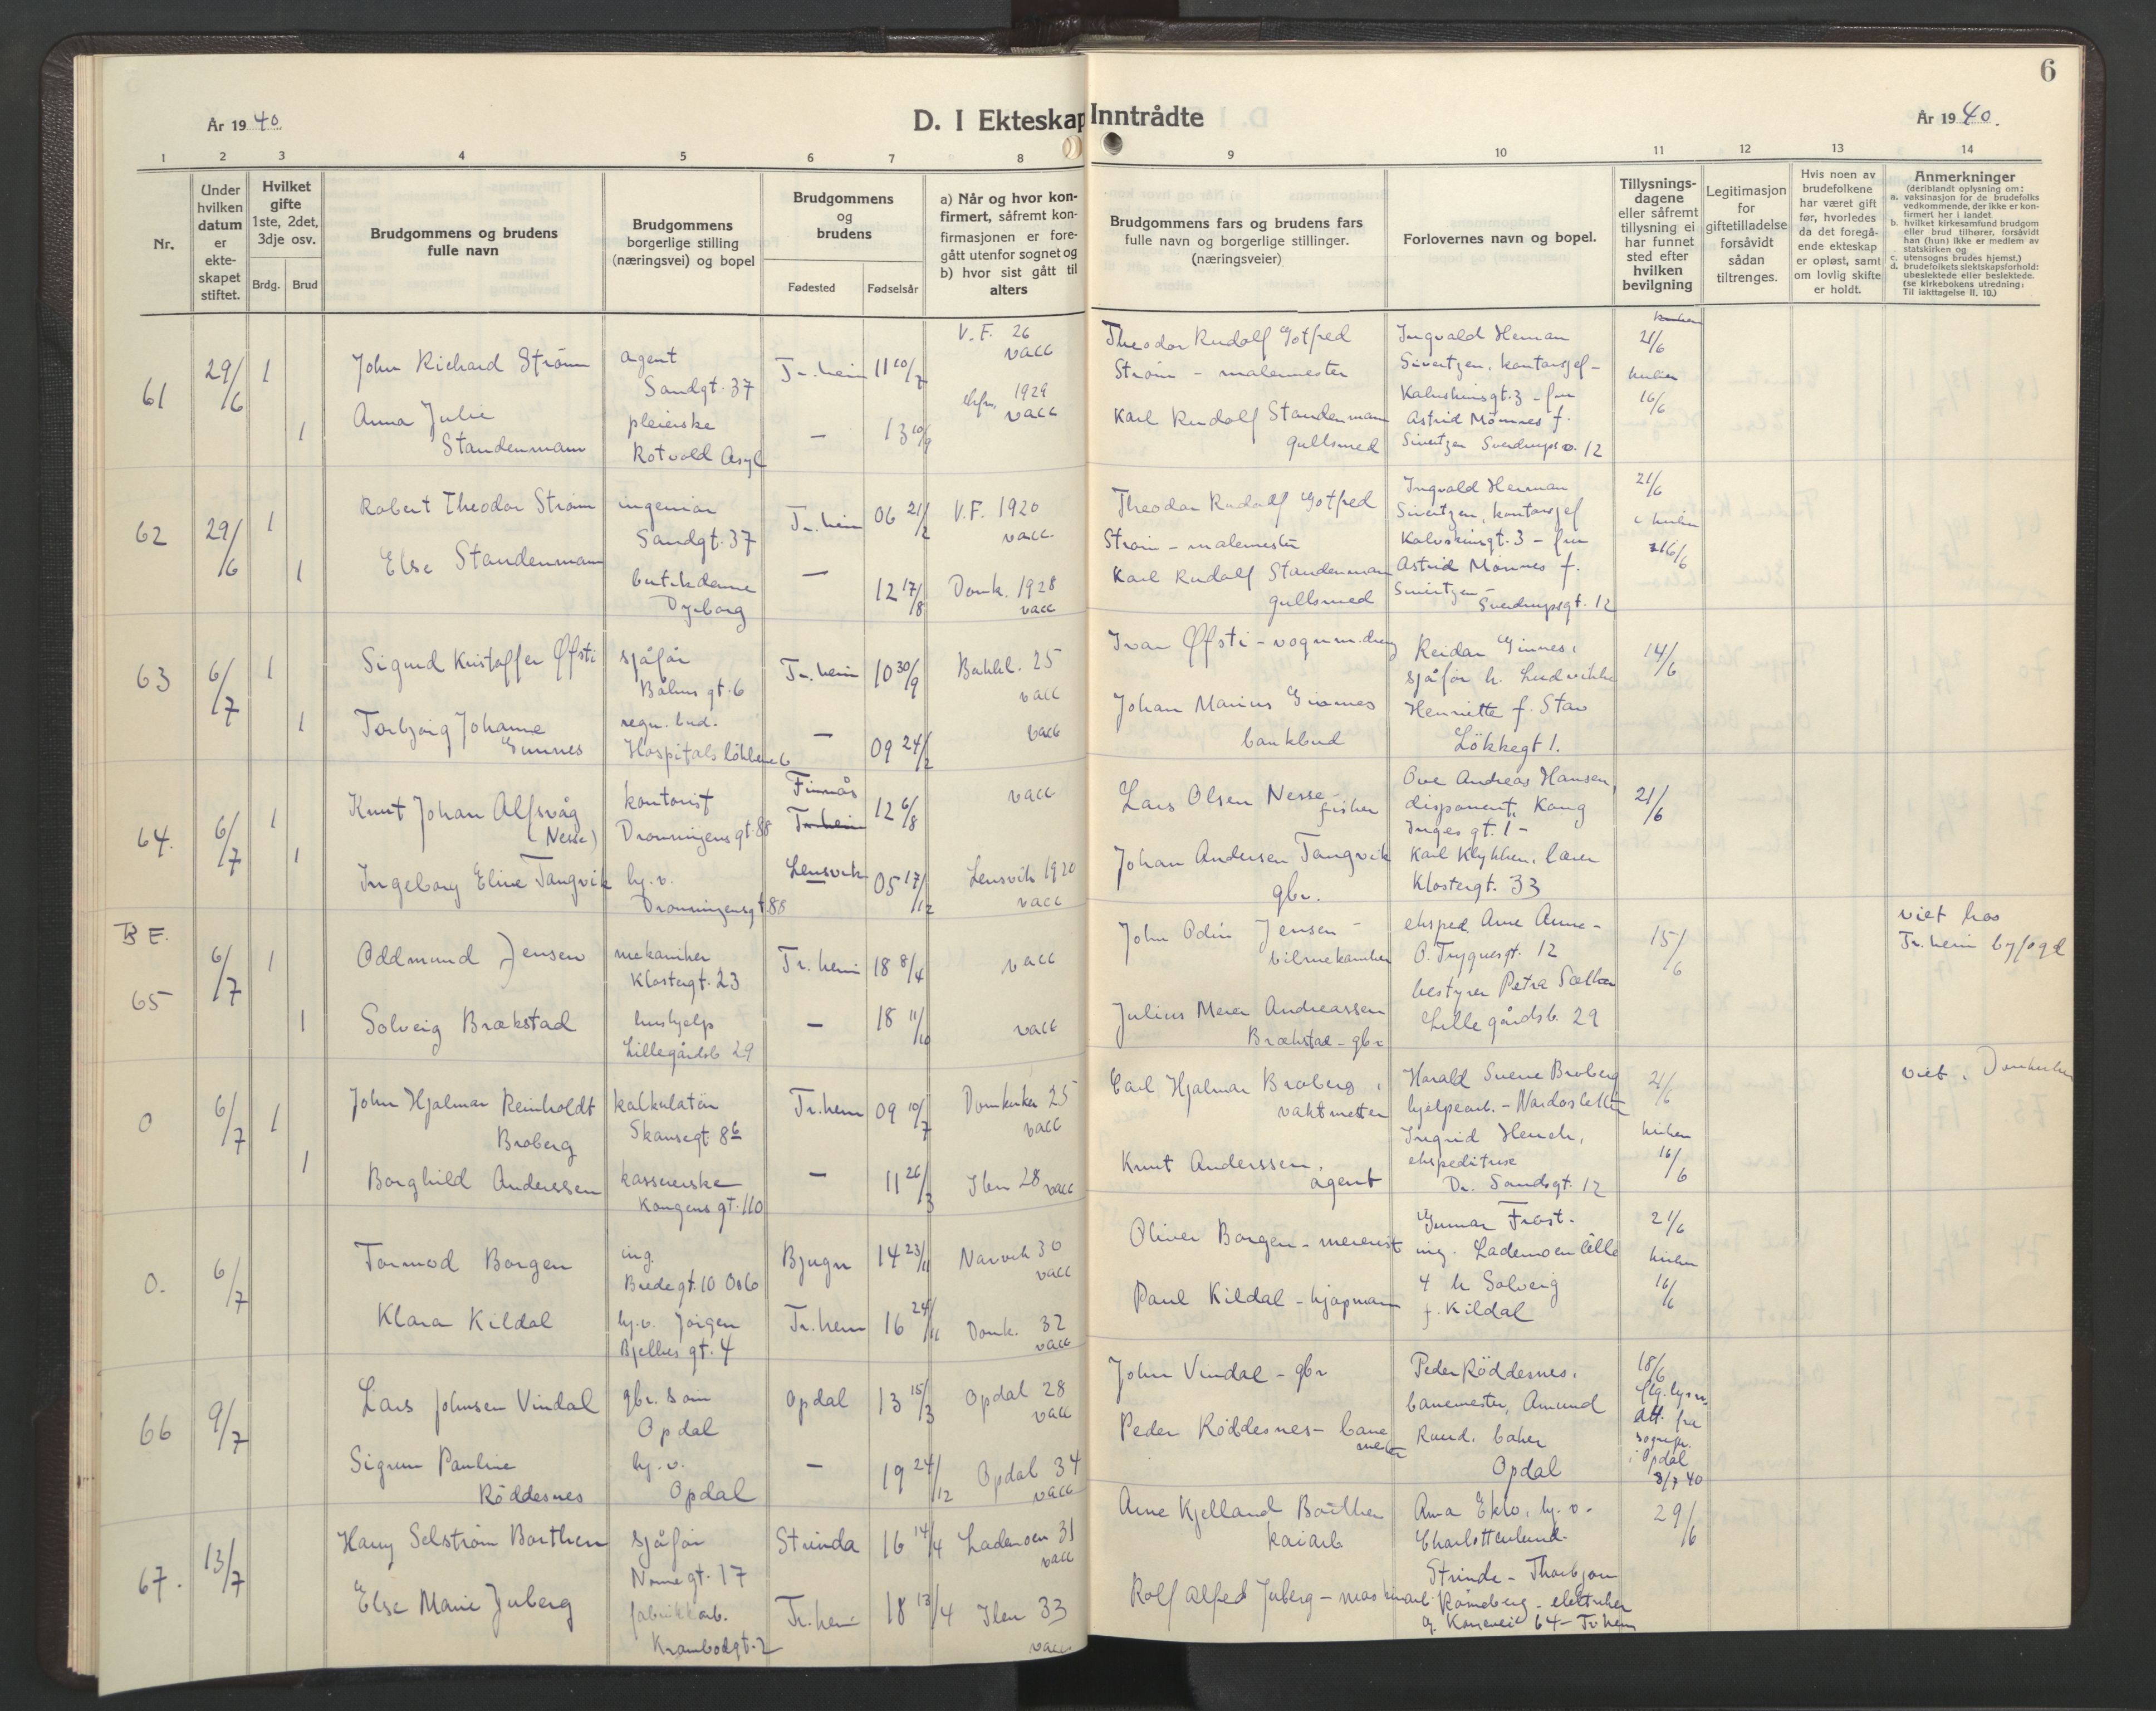 6
År 1940
D. I Ekteskap Inntrådte
År 1940.
1 2 3 4 5 6 7 8 9 10 11 12 13 14
Nr.
Under hvilken datum er ekteskapet stiftet.
Hvilket gifte 1ste, 2det, 3dje osv.
Brdg. Brud
Brudgommens og brudens fulle navn
Brudgommens borgerlige stilling (næringsvei) og bopel
Brudgommens og brudens
Fødested Fødselsår
a) Når og hvor konfirmert, såfremt konfirmasjonen er foregått utenfor sognet og b) hvor sist gått til alters
Brudgommens fars og brudens fars fulle navn og borgerlige stillinger. (næringsveier)
Forlovernes navn og bopel.
Tillysningsdagene eller såfremt tillysning ei har funnet sted efter hvilken bevilgning
Legitimasjon for giftetilladelse forsåvidt sådan tiltrenges.
Hvis noen av brudefolkene har været gift før, hvorledes da det foregående ekteskap er opløst, samt om lovlig skifte er holdt.
Anmerkninger
(deriblandt oplysning om:
a. vaksinasjon for de brudefolks vedkommende, der ikke er konfirmert her i landet
b. hvilket kirkesamfund brudgom eller brud tilhører, forsåvidt han (hun) ikke er medlem av statskirken og
c. utensogns brudes hjemst.)
d. brudefolkets slektskapsforhold: ubeslektede eller beslektede.
(se kirkebokens utredning: Til iakttagelse II. 10.)
61 29/6 1 John Richard Strøm agent Sandgt. 37 Tr.heim 11 10/7 V.F. 26 vacc
Theodor Rudolf Gotfred Strøm - malermester
Ingvald Herman Sivertzen, kontorsjef - Kalvskinnsgt. 3 - fru Astrid Mønnes f. Sivertzen Sverdrupsv. 12
21/6 kirken 16/6
1 Anna Julie Standenmann pleierske Rotvold Asyl — 13 10/9 1929 vacc
Karl Rudolf Standenmann gullsmed
62 29/6 1 Robert Theodor Strøm ingeniør Sandgt. 37 Tr.heim 06 21/2 V.F. 1920 vacc.
Theodor Rudolf Gotfred Strøm - malermester
Ingvald Herman Sivertzen, kontorsjef Kalvskinnsgt. 3 - fru Astrid Mønnes f. Sivertzen - Sverdrupsgt. 12
21/6 i kirken 16/6
1 Else Standenmann butikdame Dyrborg — 12 17/8 Domk. 1928 vacc
Karl Rudolf Standenmann gullsmed
63 6/7 1 Sigurd Kristoffer Øfsti sjåfør Båhus gt. 6 Tr.heim 10 30/9 Bakkl. 25 vacc
Ivar Øfsti - vognm.dreng
Reidar Ginnes, sjåfør h. Ludvikke Henriette f. Stav Løkkegt 1.
14/6
1 Torbjørg Johanne Ginnes regn. bud. Hospitalsløkkene 6 — 09 24/2 vacc
Johan Marius Ginnes bankbud
64. 6/7 1 Knut Johan Alfsvåg (Nesse) kontorist Dronningens gt. 88 Finnås Tr.heim 12 6/8 vacc
Lars Olsen Nesse - fisker
Ove Andreas Hansen, disponent, Kong Inges gt. 1 - Karl Klykken, lærer Klostergt. 33
21/6
1 Ingeborg Eline Tangvik hj.v. Dronningensgt. 88 Lensvik 05 17/12 Lensvik 1920 vacc
Johan Andersen Tangvik gbr.
BF.
65 6/7 1 Oddmund Jensen mekaniker Klostergt. 23 Tr.heim 18 8/4 vacc
John Odin Jensen - bilmekaniker
eksped. Arne Aune - O. Trygvesgt. 12 bestyrer Petra Sæther Lillegårdsb. 29
15/6
viet hos Tr.heim byfogd
1 Solveig Brækstad hushjelp Lillegårdsb 29 — 18 11/10 vacc
Julius Meier Andreassen Brækstad - gbr
0 6/7 1 John Hjalmar Reinholdt Broberg kalkulatør Skansegt. 8b Tr.heim 09 10/7 Domkirken 25 vacc
Carl Hjalmar Broberg, vaktmester
Harald Sverre Broberg hjelpearb. - Nardosletta Ingrid Henck, ekspeditrise Dr. Sandsgt. 12
21/6 kirken 16/6
viet i Domkirken
1 Borghild Anderssen kassererske Kongens gt. 110 — 11 26/3 Ilen 28 vacc
Knut Anderssen, agent
0. 6/7 Tormod Borgen ing. Bredegt. 10 Oslo Bjugn 14 23/11 Narvik 30 vacc
Oliver Borgen - meierist
Gunnar Frost. ing. Lademoen allé 4 h Solveig f. Kildal
21/6 kirken 16/6
Klara Kildal hj.v. Jørgen Bjelkes gt. 4 Tr.heim 16 24/11 Domk. 32 vacc
Paul Kildal - kjøpmann
66 9/7 Lars Johnsen Vindal gbr. søn Opdal Opdal 13 15/3 Opdal 28 vacc
John Vindal - gbr
Peder Röddesnes, banemester, Amund Rund. baker Opdal
18/6 flg. lysn. att. fra sognepr. i Opdal 8/7 40
Sigrun Pauline Röddesnes hj.v. Opdal — 19 24/12 Opdal 34 vacc
Peder Röddesnes - banemester
67. 13/7 Harry Selstrøm Borthen sjåfør Nonnegt. 17 Strinda 16 14/4 Lademoen 31 vacc
Arne Kjelland Borthen kaiarb
Anna Eklo, hj.v. - Charlottenlund. Strinda - Thorbjørn elektriker 64 - Tr heim
29/6
Else Marie Juberg fabrikkarb. Krambodgt. 2 Tr.heim 18 13/4 Ilen 33 vacc
Rolf Alfred Juberg - maskinarb.